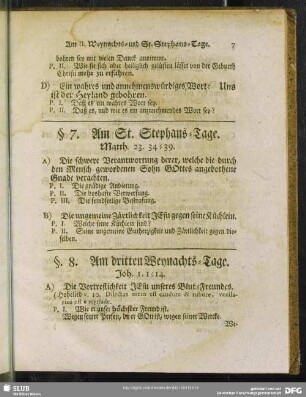 Am II. Weynachts- und St. Stephans-Tage. 7
bohren sey mit vielen Danck annimm.
P. II. Wie sie sich aber heiliglich gelüsten lässet von der Geburth
Christi mehr zu erfahren.
D) Ein wahres und annehmenswürdiges Wort: Uns
ist der Heyland gebohren.
P. I. Daß es ein wahres Wort sey.
P. II. Daß es, und wie es ein anzunehmendes Wort sey?
§. 7. Am St. Stephans-Tage.
Matth. 23. 34-39.
A) Die schwere Verantwortung derer, welche die durch
den Mensch gewordenen Sohn GOttes angebothene
Gnade verachten.
P. I. Die gnädige Anbietung.
P. II. Die boßhafte Verwerfung.
P. III. Die schwere Bestrafung.
B) Die ungemeine Zärtlichkeit JEsu gegen seine Küchlein.
P. I. Welche seine Küchlein sind?
P. II. Seine ungemeine Gutherzigkeit und Zärtlichkeit gegen die-
selben.
§. 8. Am dritten Weynachts-Tage.
Joh. 1. 1-14.
A) Die Vortreflichkeit JEsu unseres Blut-Freundes.
(Hohelied v. 10. Dilectus meus est candidus & rubicundus,
P. I. Wie er unser höchster Freund ist.
Wegen seiner Person, da er GOtt ist, wegen seiner Wercke.
We-
SLUB
Wir führen Wissen.